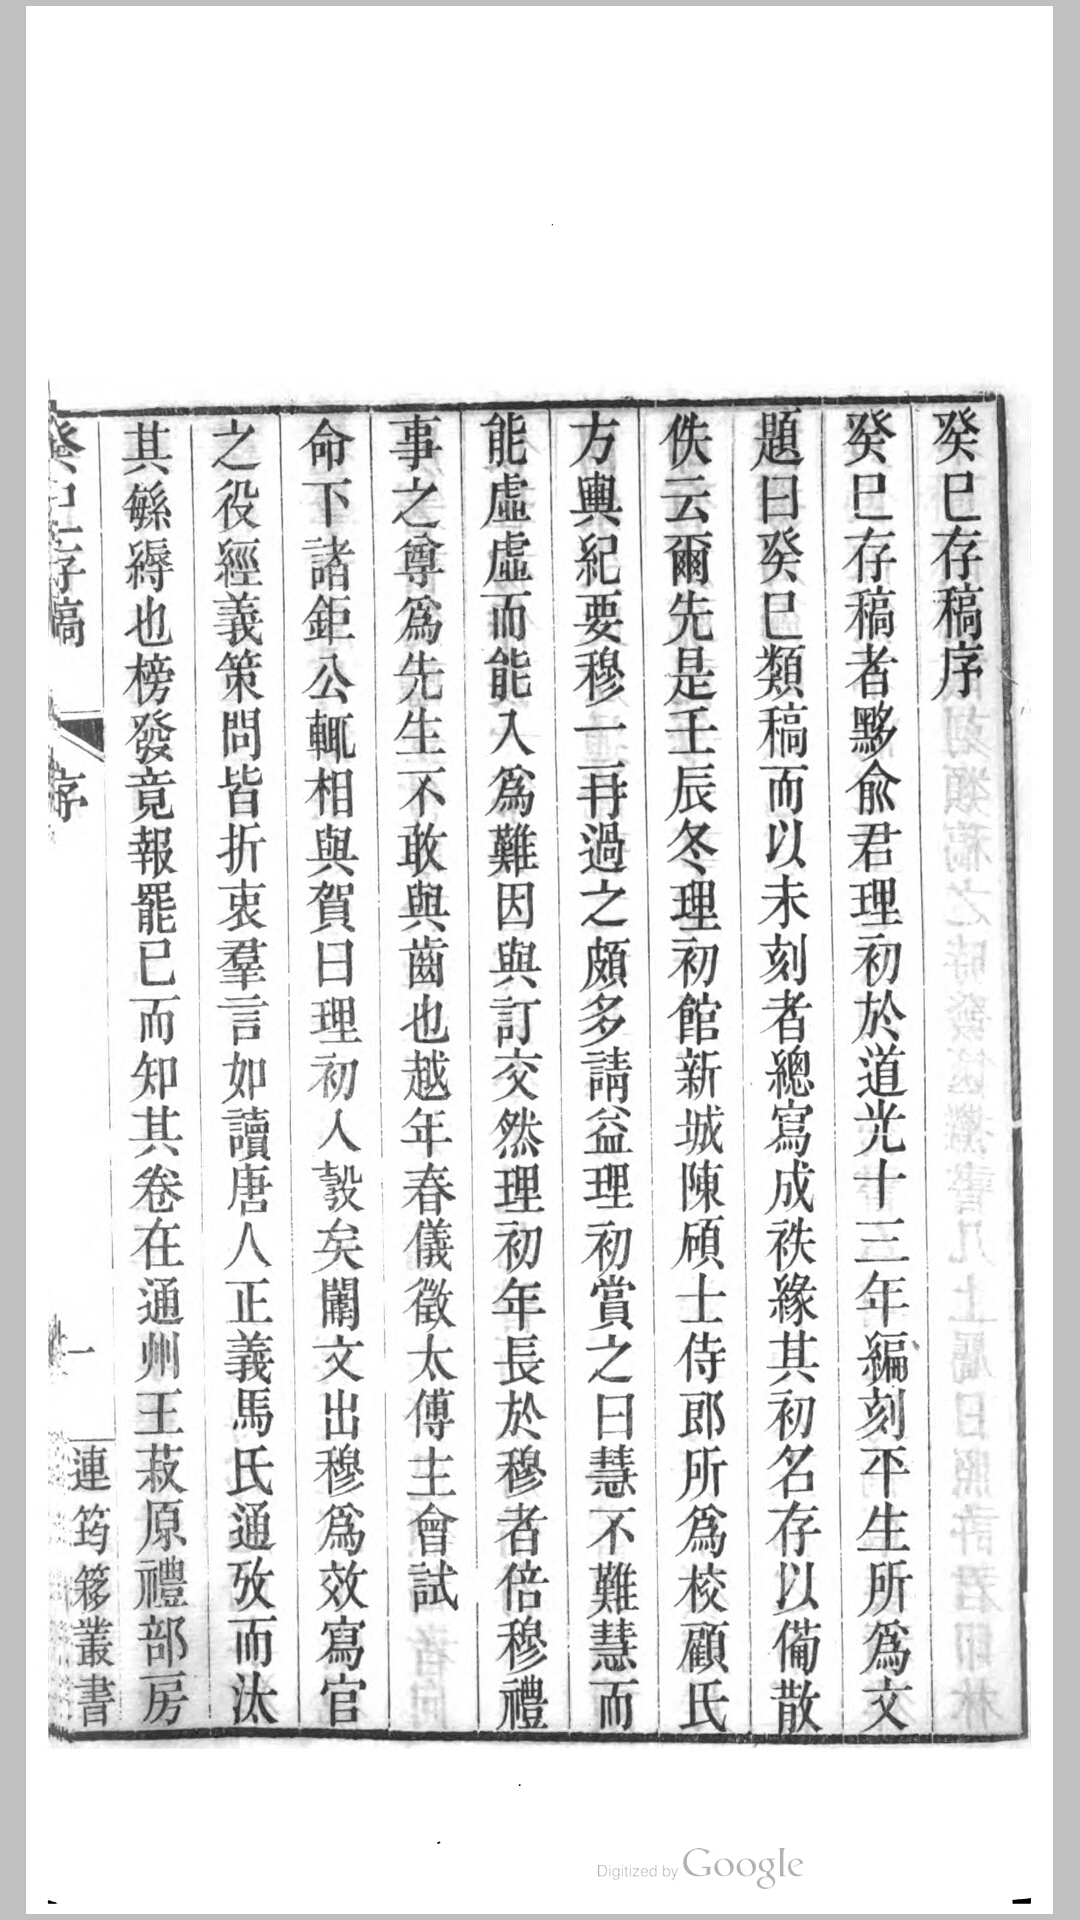 癸巳存稿序
癸巳存稿者黟俞君理初於道光十三年編刻平生所爲文
題曰癸巳類稿而以未刻者總寫成袟緣其初名存以僃散
佚云爾先是壬辰冬理初館新城陳碩士侍郎所爲校顧氏
方輿紀要穆一再過之頗多請益理初賞之曰慧不難慧而
能虛虛而能入爲難因與訂交然理初年長於穆者倍穆禮
事之尊爲先生不敢與齒也越年春儀徵太傅主會試
命下諸鉅公輒相與賀曰理初入彀矣闈文出穆爲效寫官
之役經義策問皆折衷羣言如讀唐人正義馬氏通攷而汰
其緐縟也榜發竟報罷已而知其卷在通州王菽原禮部房
癸巳存稿
序
一
連筠簃叢書
Digitized by Google